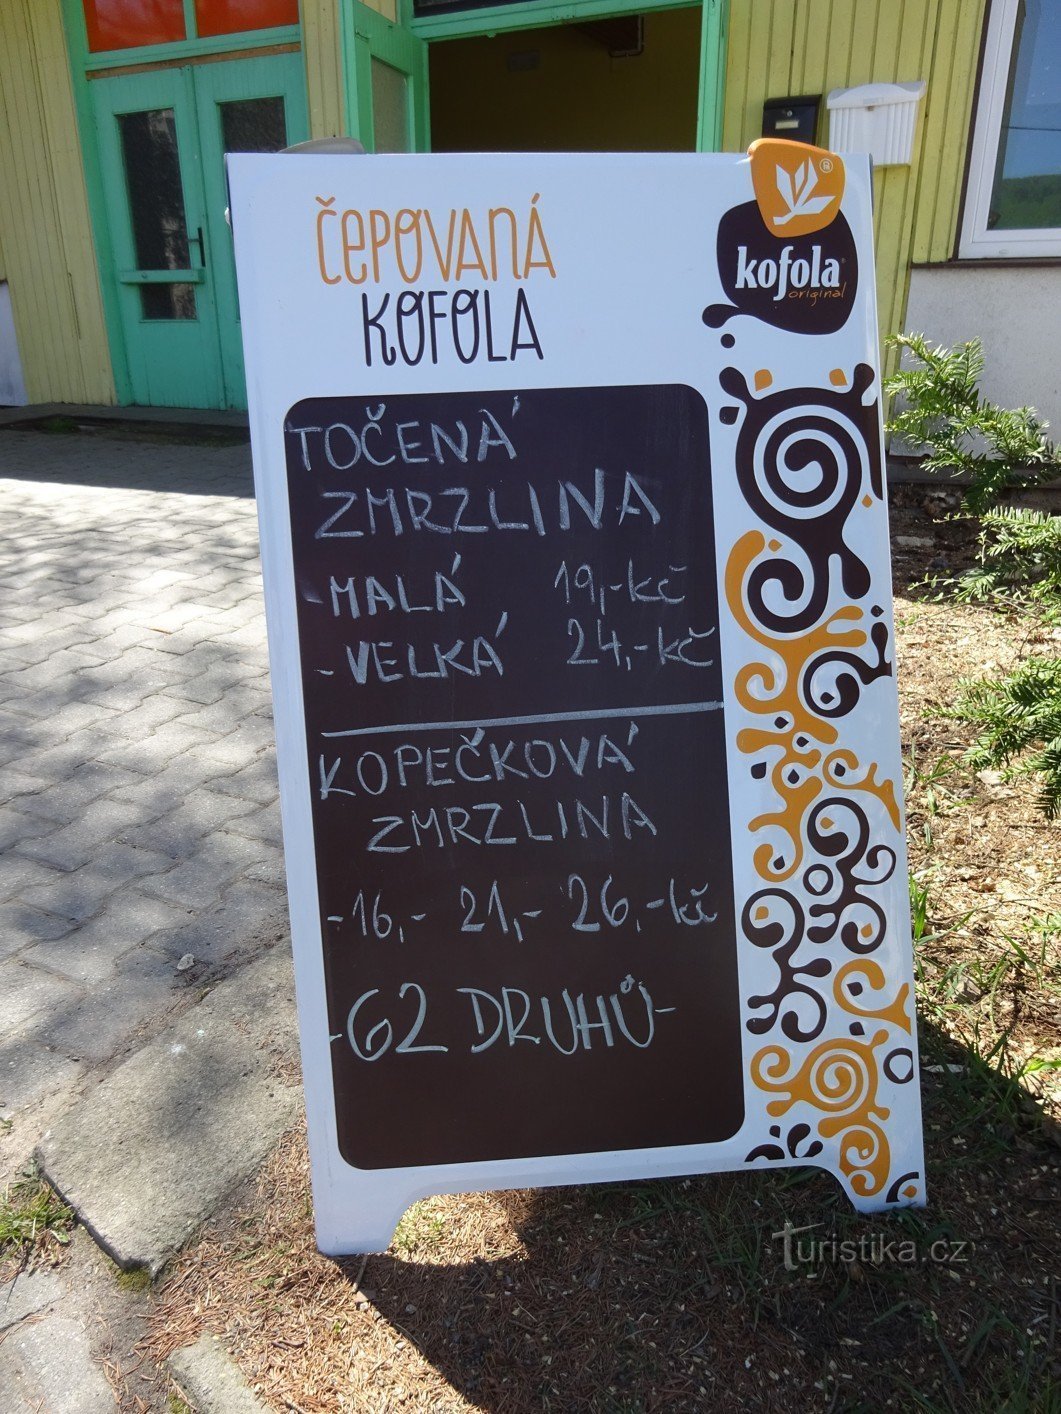 ČEPOVANÁ
KOFOLA
kofola
original
TOČENÁ
ZMRZLINA
- MALÁ 19,-kč
- VELKÁ 24,-kč
KOPEČKOVÁ
ZMRZLINA
-16,- 21,- 26,-kč
-62 DRUHŮ-
Turistika.cz